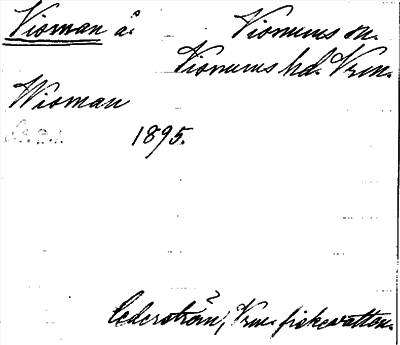 Vioman å. Visnums sn.
Visnums hd. Vrm.
Wioman
1895.
Cederström, Vrm. fiskevatten.